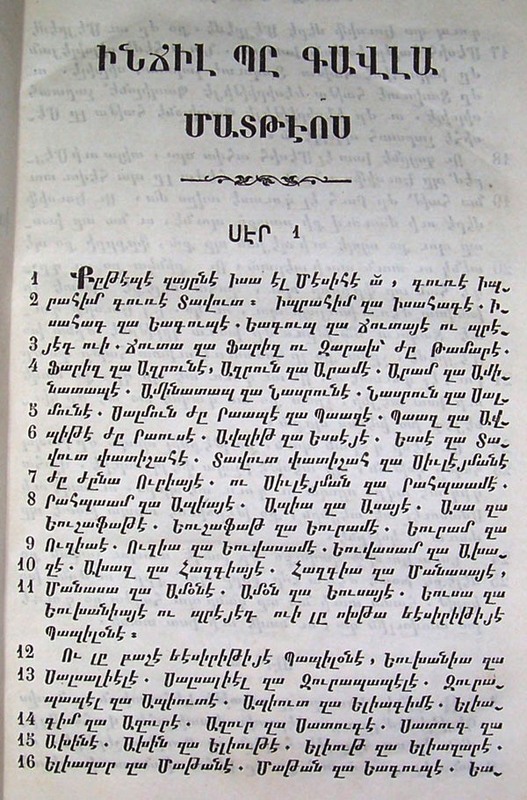 ԻՆՃԻԼ ՊԸ ԳԱՎԼԱ
ՄԱՏԹԷՈՍ
ՍԷՐ 1
1 Քըթէպէ զայընէ իսա էլ Մէսիհէ ա՞, գուռէ Իպ֊
2 րահիմ գուռէ Տավուտ։ Իպրահիմ զա Իսահագէ. Ի֊
սահագ զա Եագուպէ. Եագուպ զա Ճուտայէ ու պրէ֊
3 յէգ ուի. Ճուտա զա Ֆարիզ ու Զարախ՝ ժը Թամարէ.
4 Ֆարիզ զա Ազրունէ, Ազրուն զա Արամէ. Արամ զա Ամի֊
նատապէ. Ամինատապ զա Նասրունէ. Նասրուն զա Սալ֊
5 մունէ. Սալմուն ժը Րաապէ զա Պաազէ. Պաազ զա Ավ֊
6 պիթէ ժը Րաուսէ. Ավպիթ զա Եսսէյէ. Եսսէ զա Տա֊
վուտ փատիշահէ. Տավուտ փատիշահ զա Սիւլէյմանէ
7 ժը ժընա Ուրիայէ. ու Սիւլէյման զա Րահպաամէ.
8 Րահպաամ զա Ապիայէ. Ապիա զա Ասայէ. Ասա զա
Եուշաֆաթէ. Եուշաֆաթ զա Եուրամէ. Եուրամ զա
9 Ուզիաէ. Ուզիա զա Եուվասամէ. Եուվասամ զա Ախա֊
10 զէ. Ախազ զա Հազգիայէ. Հազգիա զա Մանասայէ,
11 Մանասա զա Ամօնէ. Ամօն զա Եուսայէ. Եուսա զա
Եուխանիայէ ու պրէյէգ ուի լը ոխթա եէսիրիթիյէ
Պապիլօնէ։
12 Ու լը բաշէ եէսիրիթիյէ Պապիլօնէ, Եուխանիա զա
13 Սալսալիէլէ. Սալսալիէլ զա Զուրապապէլէ. Զուրա֊
պապէլ զա Ապիուտէ. Ապիուտ զա Ելիագիմէ. Ելիա֊
14 գիմ զա Ազուրէ. Ազուր զա Սատուգէ. Սատուգ զա
15 Ախինէ. Ախին զա Ելիութէ. Ելիութ զա Ելիազարէ.
16 Ելիազար զա Մաթանէ. Մաթան զա Եագուպէ. Եա֊